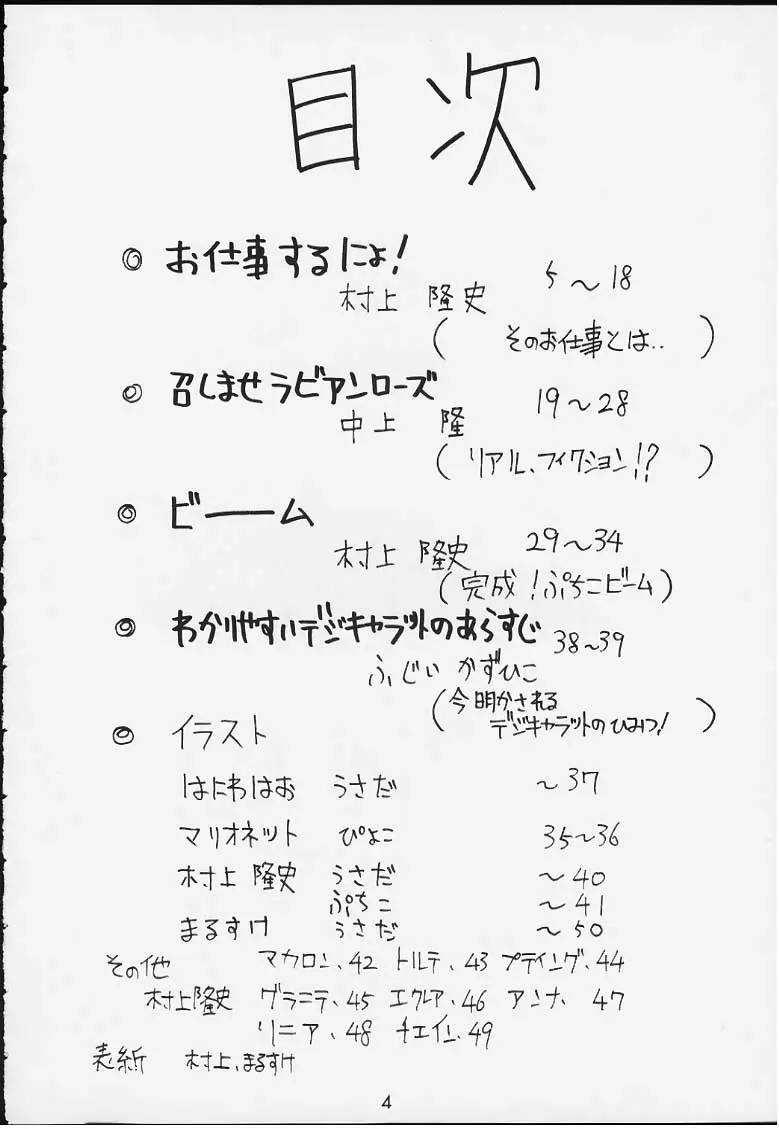 目次
◎ お仕事するにょ!
村上 隆史 5～18
(そのお仕事とは..)
◎ 召しませラビアンローズ
中上 隆 19～28
(リアル、フィクション!?)
◎ ビーーム
村上 隆史 29～34
(完成!ぷちこビーム)
◎ わかりやすいデジキャラットのあらすじ 38～39
ふじい かずひこ
(今明かされる
デジキャラットのひみつ!)
◎ イラスト
はにわはお うさだ ～37
マリオネット ぴよこ 35～36
村上 隆史 うさだ ～40
ぷちこ ～41
まるすけ うさだ ～50
その他 マカロン、42 トルテ、43 プティング、44
村上隆史 グラニテ、45 エクレア、46 アンナ、47
リニア、48 チェイン、49
表紙 村上、まるすけ
4